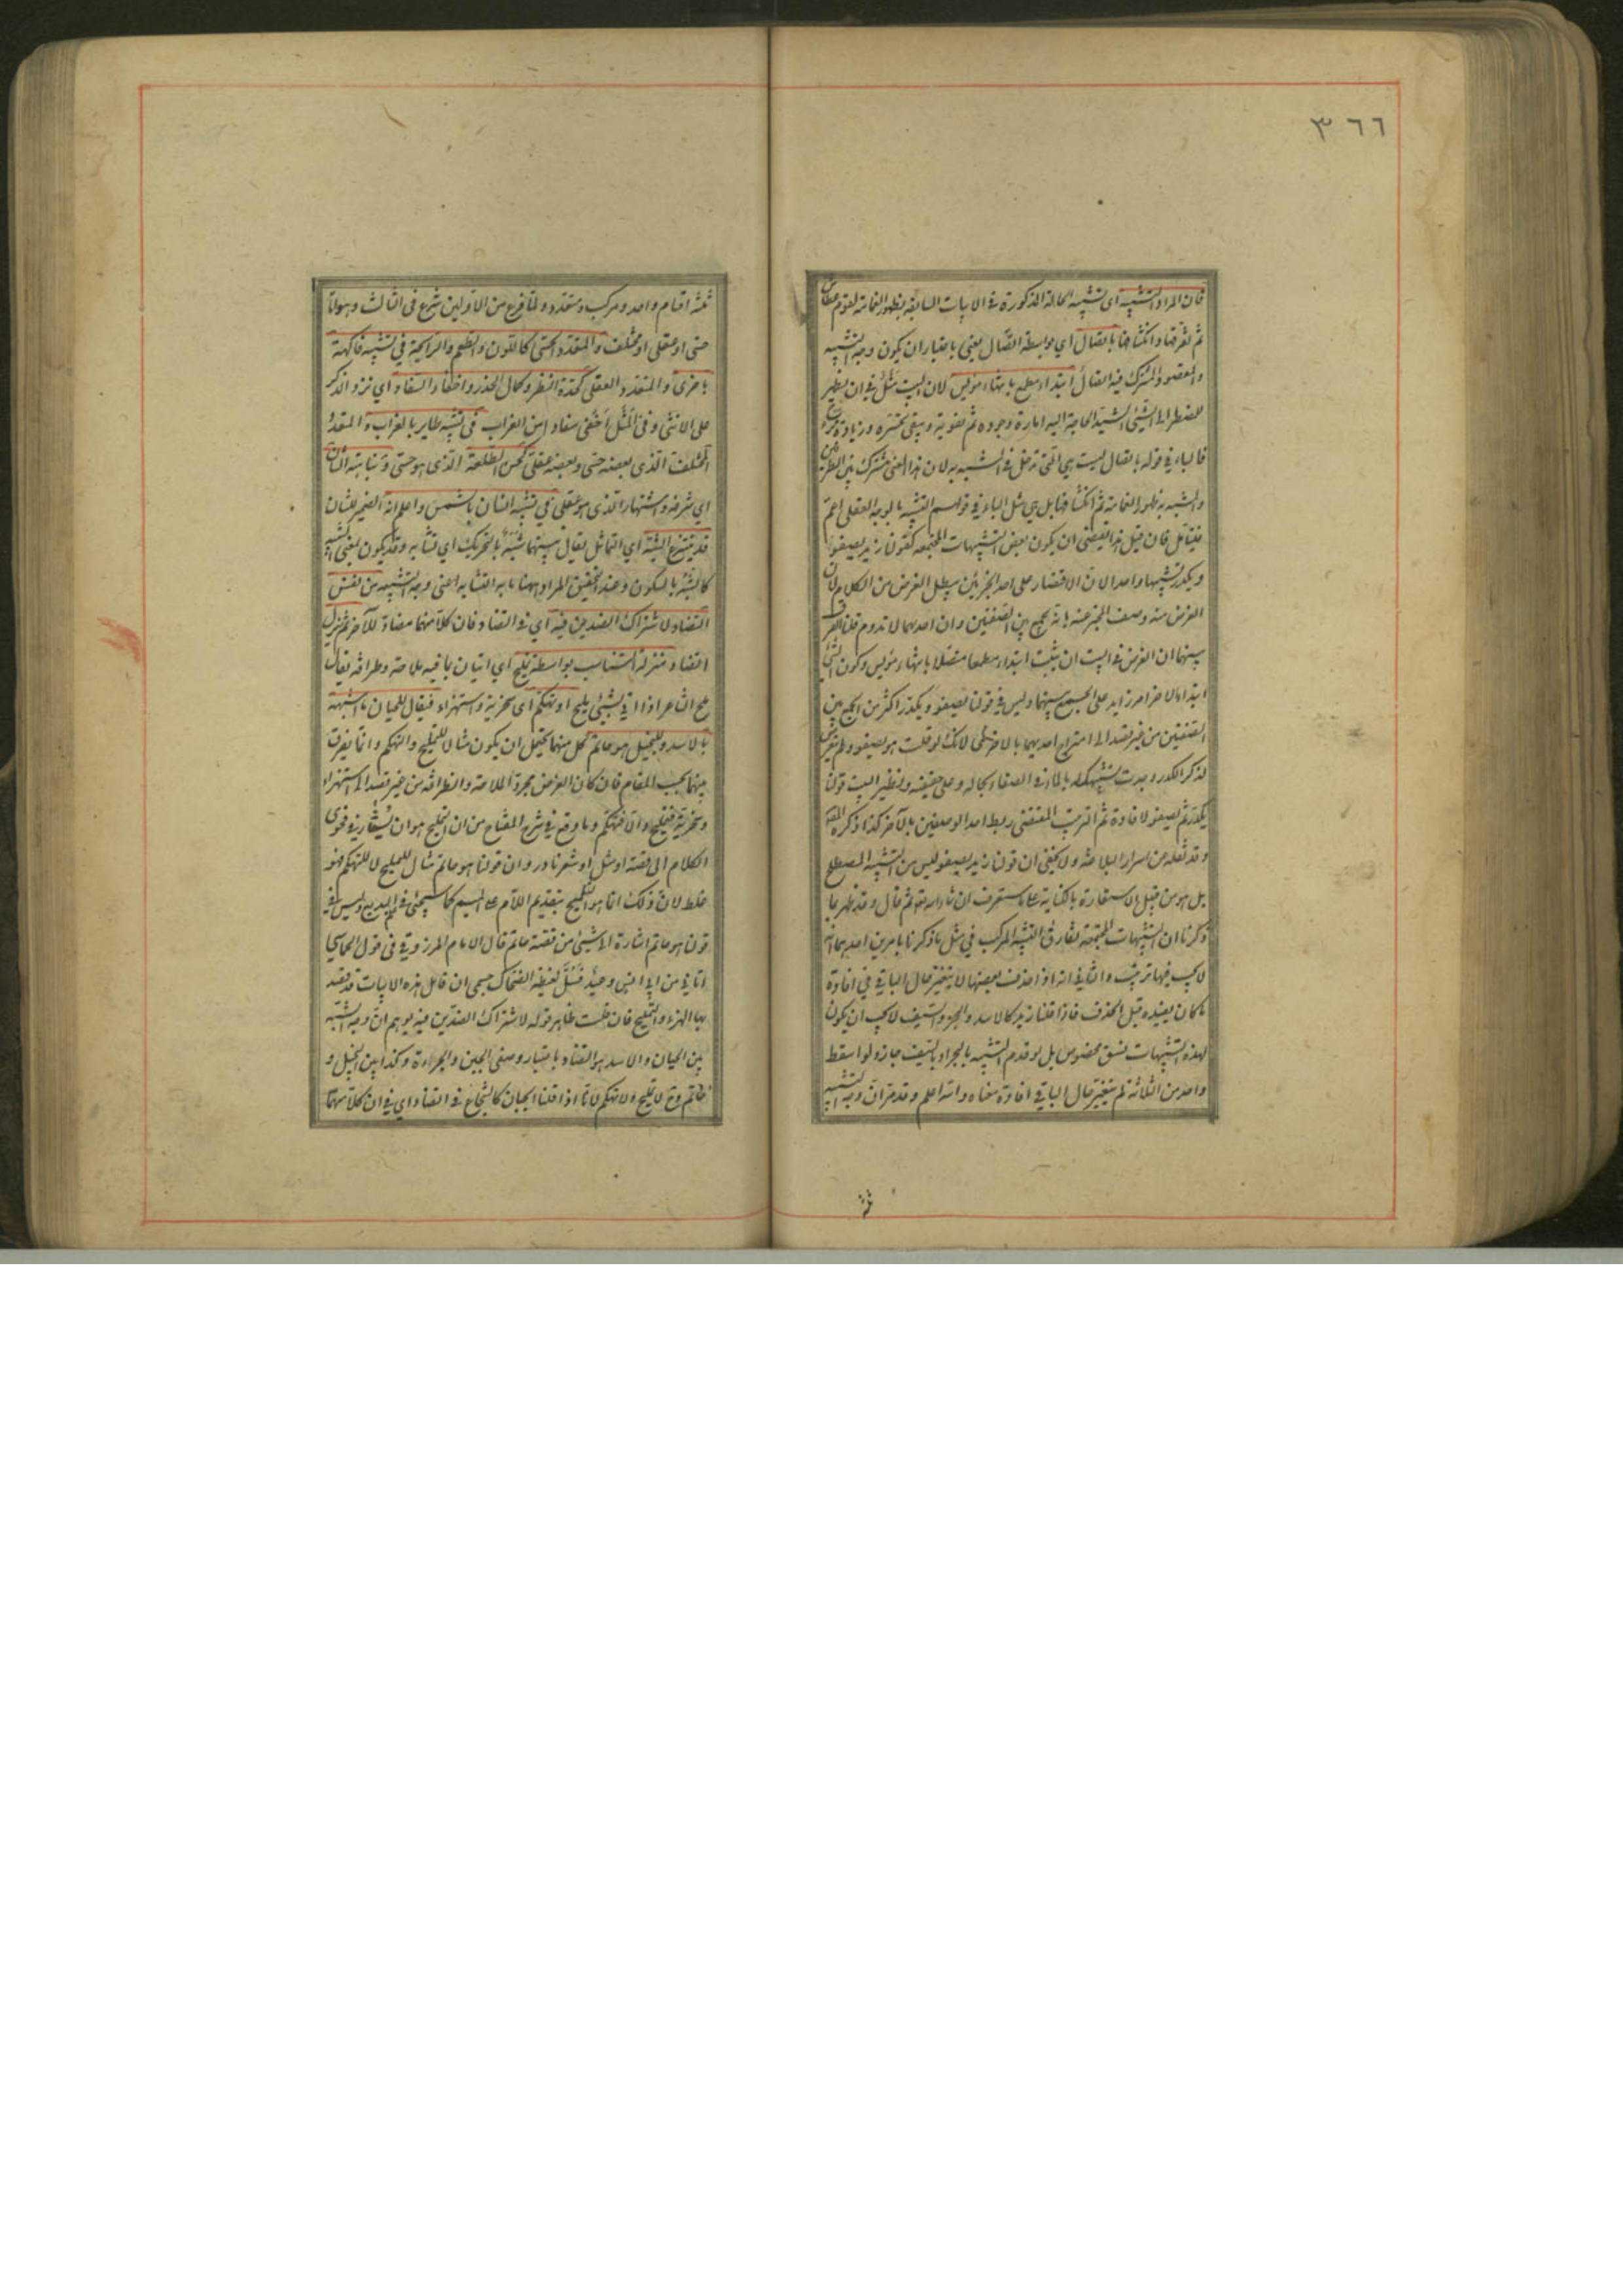 ٣٦٦
فان المراد التشبيه اى تشبيه الحالة المذكورة في الابيات السابقة بظهور الغمامة لقوم عطاش
ثم تفرقها وانكشافها باتصال اي بواسطة اتصال يعني باعتبار ان يكون وجه التشبيه
والمقصود المشترك فيه اتصال ابتداء مطمع بانتهاء مؤيس لان البيت مثل في ان يظهر
للمضطر الى الشيئ الشديد الحاجة اليه امارة وجوده ثم تفوته ويبقى تحسره وزيادة ترح
فالباء في قوله باتصال ليست هي التي تدخل في المشبه به لان هذا المعنى مشترك بين الطرفين
والمشبه به ظهور الغمامة ثم انكشافها بل هي مثل الباء في قولهم التشبيه بالوجه العقلي اعم
فليتأمل فان قيل هذا يقتضى ان يكون بعض التشبيهات المجتمعة كقولنا زيد يصفو
ويكدر تشبيها واحدا لان الاقتصار على احد الخبرين يبطل الغرض من الكلام لان
الغرض منه وصف المخبر عنه بانه يجمع بين الصفتين وان احديهما لا تدوم قلنا الفرق
بينهما ان الغرض في البيت ان يثبت ابتداء مطمعا متصلا بانتهاء مؤيس وكون الشيئ
ابتداء لآخر امر زايد على الجمع بينهما وليس في قولنا يصفو ويكدر اكثر من الجمع بين
الصفتين من غير قصد الى امتزاج احديهما بالاخرى لانك لو قلت هو يصفو ولم تتعرض
لذكر الكدر وجدت تشبيهك له بالماء في الصفاء بحاله وعلى حقيقته ونظير البيت قولنا
يكدر ثم يصفو لافادة ثم الترتيب المقتضى ربط احد الوصفين بالآخر كذا ذكره المص
وقد نقله من اسرار البلاغة ولا يخفى ان قولنا زيد يصفو ليس من التشبيه المصطلح
بل هو من قبيل الاستعارة بالكناية على ما ستعرف ان شاء الله تع ثم قال وقد ظهر بما
ذكرنا ان التشبيهات المجتمعة تفارق التشبيه المركب في مثل ما ذكرنا بامرين احدهما انه
لا يجب فيها ترتيب والثاني انه اذا حذف بعضها لا يتغير حال الباقي في افادة
ما كان يفيده قبل الحذف فاذا قلنا زيد كالاسد والبحر والسيف لا يجب ان يكون
لهذه التشبيهات نسق مخصوص بل لو قدم التشبيه بالبحر او بالسيف جاز ولو اسقط
واحد من الثلاثة لم يتغير حال الباقي في افادة معناه والله اعلم وقد مر ان وجه التشبيه
ثلثة اقسام واحد ومركب ومتعدد ولما فرغ من الاولين شرع في الثالث وهو اما
حسى او عقلى او مختلف والمتعدد الحسى كاللون والطعم والرائحة في تشبيه فاكهة
باخرى والمتعدد العقلي كحدة النظر وكمال الحذر واخفاء السفاد اي نزو الذكر
على الانثى وفى المثل اخفى سفادا من الغراب في تشبيه طاير بالغراب والمتعدد
المختلف الذى بعضه حسى وبعضه عقلى كحسن الطلعة الذى هو حسى ونباهة الشان
اي شرفه واشتهاره الذى هو عقلى في تشبيه انسان بالشمس واعلم انه الضمير للشان
قد ينتزع الشبه اي التماثل يقال بينهما شبه بالتحريك اي تشابه وقد يكون بمعنى الشبيه
كالشبه بالسكون وعند التحقيق المراد ههنا ما به التشابه اعنى وجه التشبيه من نفس
التضاد لاشتراك الضدين فيه اي في التضاد فان كلا منهما مضاد للآخر ثم ينزل
التضاد منزلة التناسب بواسطة تمليح اي اتيان بما فيه ملاحة وظرافة يقال
ملح الشاعر اذا اتى بشيئ مليح او تهكم اى سخرية واستهزاء فيقال للجبان ما اشبهه
بالاسد وللبخيل هو حاتم كل منهما يحتمل ان يكون مثالا للتمليح والتهكم وانما يفرق
بينهما بحسب المقام فان كان الغرض مجرد الملاحة والظرافة من غير قصد الى استهزاء
وسخرية فتمليح والا فتهكم وما وقع في شرح المفتاح من ان التمليح هو ان يشار في فحوى
الكلام الى قصة او مثل او شعر نادر وان قولنا هو حاتم مثال للتمليح لا للتهكم فهو
غلط لان ذلك انما هو التلميح بتقديم اللام على الميم كما سيجئ في علم البديع وليس في
قولنا هو حاتم اشارة الى شيئ من قصة حاتم قال الامام المرزوقي في قول الحماسي
اتاني من ابي انس وعيد فسل لغيظه الضحاك جسمى ان قائل هذه الابيات قد قصد
بها الهزء والتمليح فان قلت ظاهر قوله لاشتراك الضدين فيه يوهم ان وجه الشبه
بين الجبان والاسد هو التضاد باعتبار وصفى الجبن والجراءة وكذا بين البخيل و
حاتم وح لا تمليح ولا تهكم لانا اذا قلنا الجبان كالشجاع في التضاد اي في ان كلا منهما